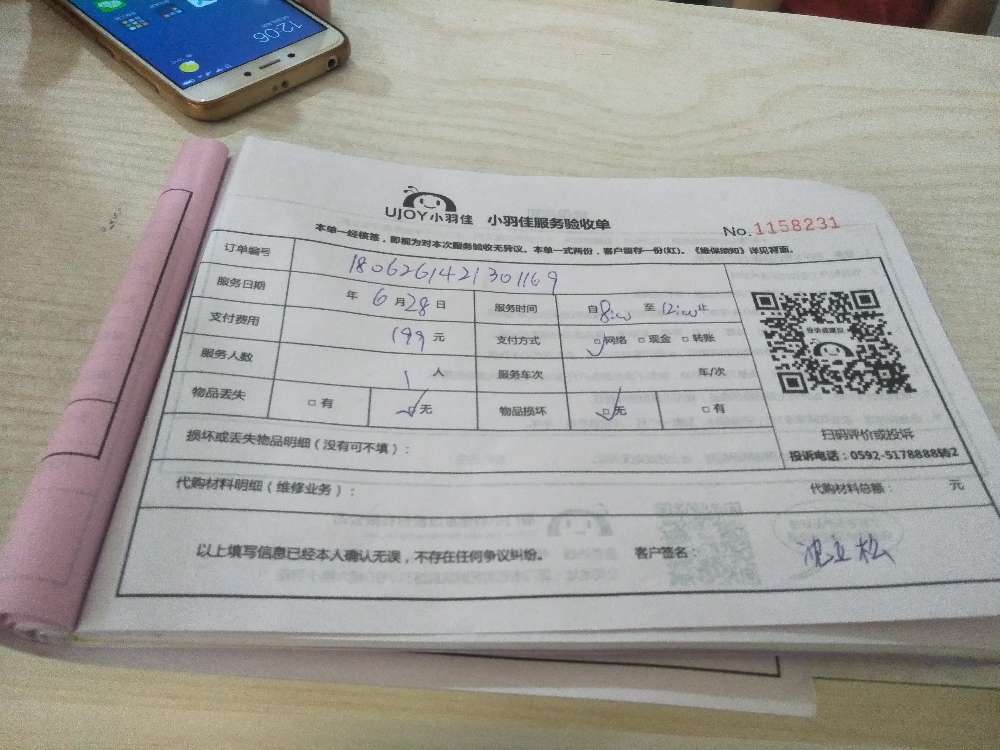 12:06
UJOY小羽佳 小羽佳服务验收单
No.1158231
本单一经核签，即视为对本次服务验收无异议。本单一式两份，客户留存一份(红)。《维保须知》详见背面。
订单编号 1806261421301169
服务日期 年 6 月 28 日 服务时间 自 8:00 至 12:00 止
支付费用 199 元 支付方式 □网络 □现金 □转账
服务人数 1 人 服务车次 车/次
物品丢失 □有 □无 物品损坏 □无 □有
扫码评价或投诉
投诉电话：0592-5178888转2
损坏或丢失物品明细（没有可不填）：
代购材料明细（维修业务）： 代购材料总额： 元
以上填写信息已经本人确认无误，不存在任何争议纠纷。 客户签名： 沈立松